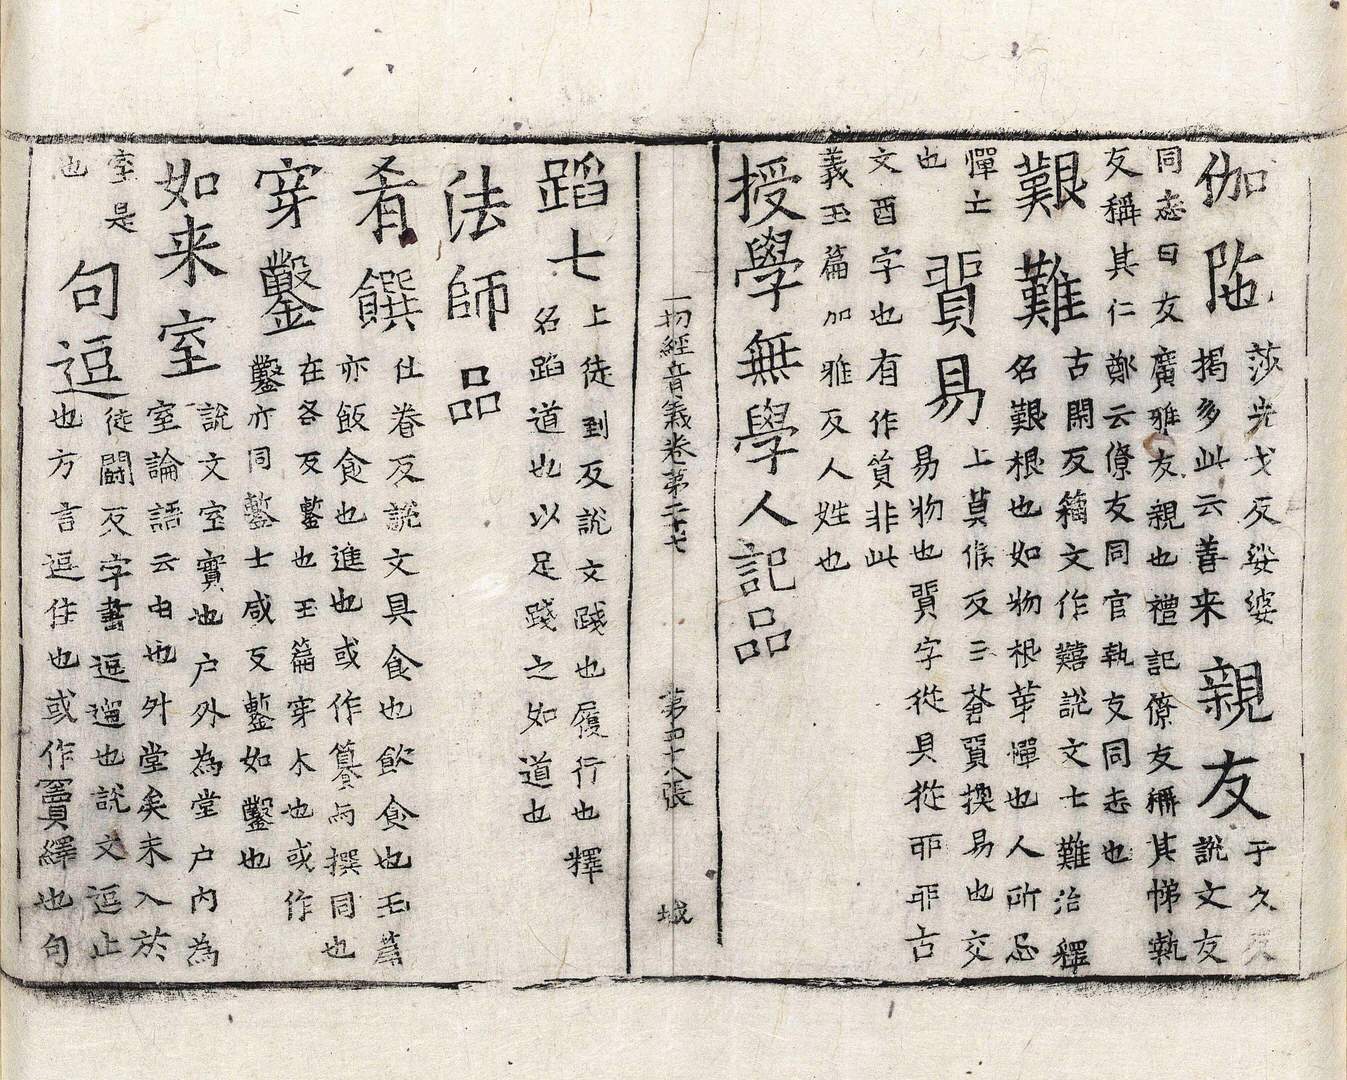 伽陁
莎步戈反娑婆
揭多此云善来
親友
于久反
說文友
同志曰友廣雅友親也禮記僚友稱其悌執
友稱其仁鄭云僚友同官執友同志也
艱難
古閑反籀文作囏說文士難治釋
名艱根也如物根革憚也人所忌
憚亡
也
貿易
上莫候反三蒼貿換易也交
易物也貿字從貝從丣丣古
文酉字也有作貿非此
義玉篇加雅反人姓也
授學無學人記品
一切經音義卷第二十七 第四十八張 城
蹈七
上徒到反說文踐也履行也釋
名蹈道也以足踐之如道也
法師品
肴饌
仕眷反說文具食也飲食也玉篇
亦飯食也進也或作籑与撰同也
穿鑿
在各反鏨也玉篇穿木也或作
鑿亦同鏨士咸反鏨如鑿也
如来室
說文室實也户外為堂户内為
室論語云由也外堂矣未入於
室是
也
句逗
徒鬭反字書逗遛也說文逗止
也方言逗住也或作竇繹也句